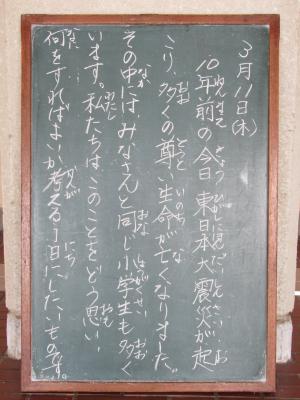 3月11日(木)
10年前の今日 東日本大震災が起
こり、多くの尊い生命が亡くなりました。
その中には、みなさんと同じ小学生も多く
います。私たちは、このことをどう思い、
何をすればよいか、考える1日にしたいものです。